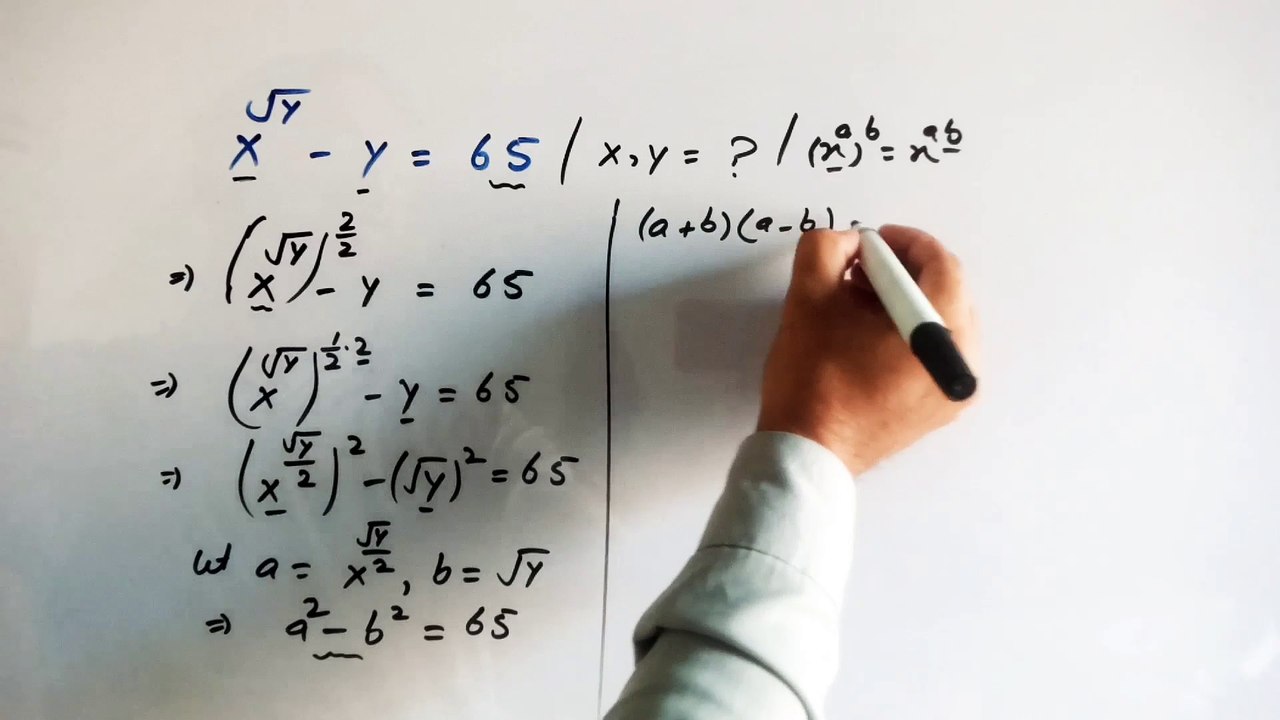 x^√y - y = 65 / x, y = ? / (x^a)^b = x^ab
⇒ (x^√y)^(2/2) - y = 65
⇒ (x^√y)^(1/2 · 2) - y = 65
⇒ (x^(√y/2))^2 - (√y)^2 = 65
let a = x^(√y/2), b = √y
⇒ a^2 - b^2 = 65
(a+b)(a-b) =